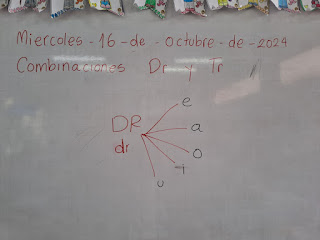 Miercoles-16-de-Octubre-de-2024
Combinaciones Dr y Tr
e
DR a
dr o
i
u